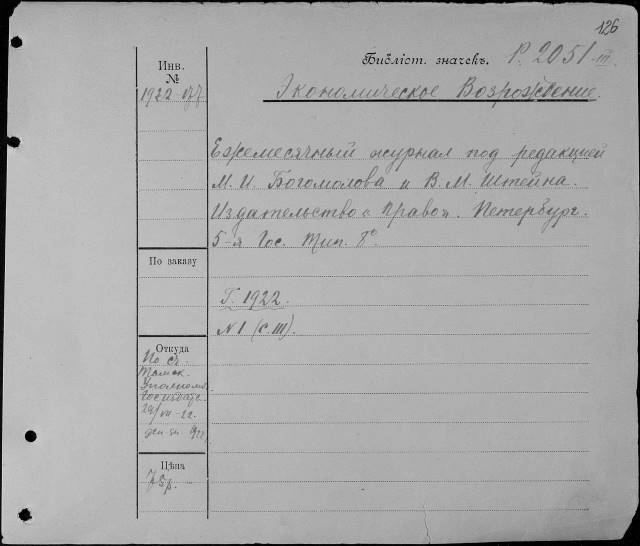 126
Библіот. значекъ. Р. 2051 III
Инв.
№
1922
Экономическое Возрождение.
Ежемесячный журнал под редакцией
М. И. Боголюбова и В. М. Штейна.
Издательство "Право". Петербург.
5-я Гос. Тип. 8°.
По заказу
Г. 1922.
№ 1 (с. III).
Откуда
По сч.
Уполном.
29/VII-22.
Цѣна
р.